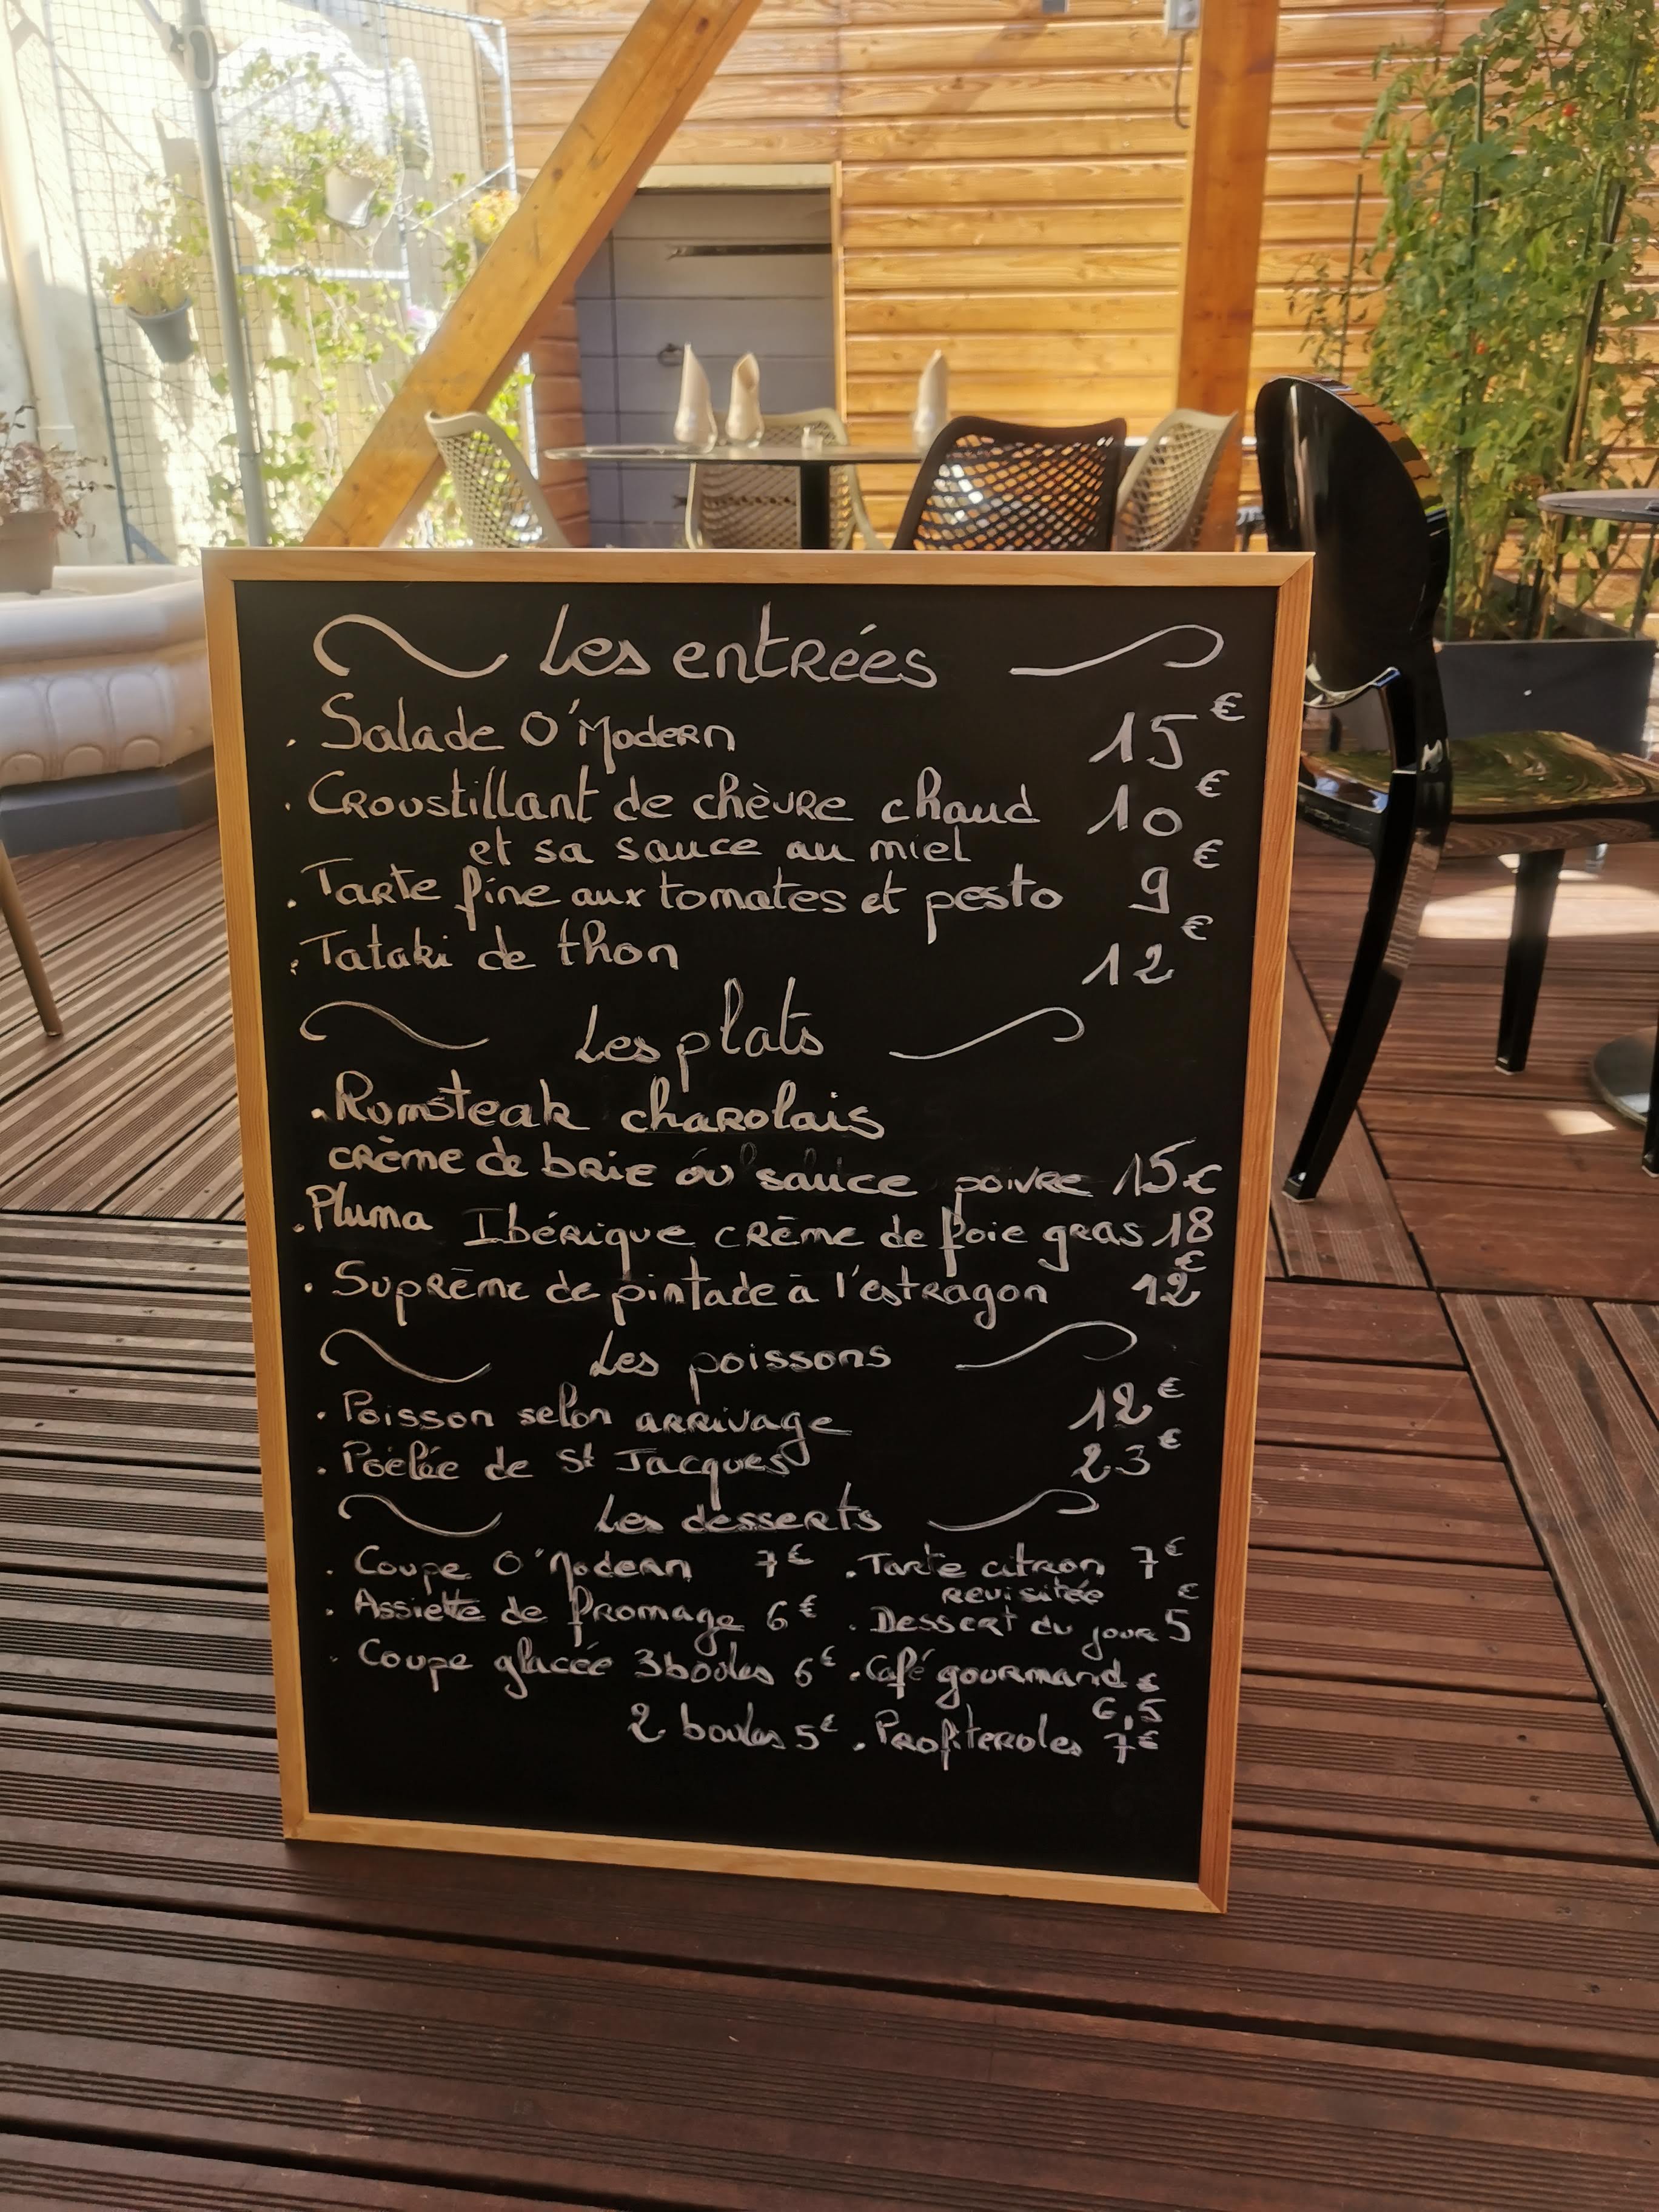 Les entrées
. Salade O'Modern 15€
. Croustillant de chèvre chaud 10€
et sa sauce au miel
. Tarte fine aux tomates et pesto 9€
. Tataki de thon 12€
Les plats
. Rumsteak charolais
crème de brie ou sauce poivre 15€
. Pluma Ibérique crème de foie gras 18
. Suprême de pintade à l'estragon 12€
Les poissons
. Poisson selon arrivage 12€
. Poélée de St Jacques 23€
Les desserts
. Coupe O'Modern 7€ . Tarte citron 7€
revisitée
. Assiette de fromage 6€ . Dessert du jour 5€
. Coupe glacée 3 boules 6€ . Café gourmand €
6,5
2 boules 5€ . Profiteroles 7€